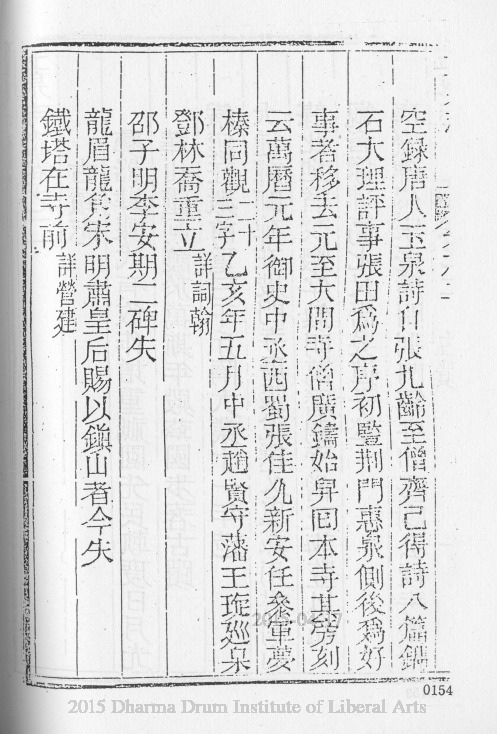 空錄唐人玉泉詩自張九齡至僧齊己得詩八篇鐫
石大理評事張田為之序初豎荆門惠泉側後爲好
事者移去元至大間寺僧廣鑄始舁囘本寺其旁刻
云萬曆元年御史中丞西蜀張佳允新安任叅軍夢
榛同觀二十三字乙亥年五月中丞趙賢守藩王璇廵杲
鄧林喬重立詳詞翰
邵子明李安期二碑失
龍眉龍角宋明肅皇后賜以鎭山者今失
鐵塔在寺前詳營建
0154
2015 Dharma Drum Institute of Liberal Arts